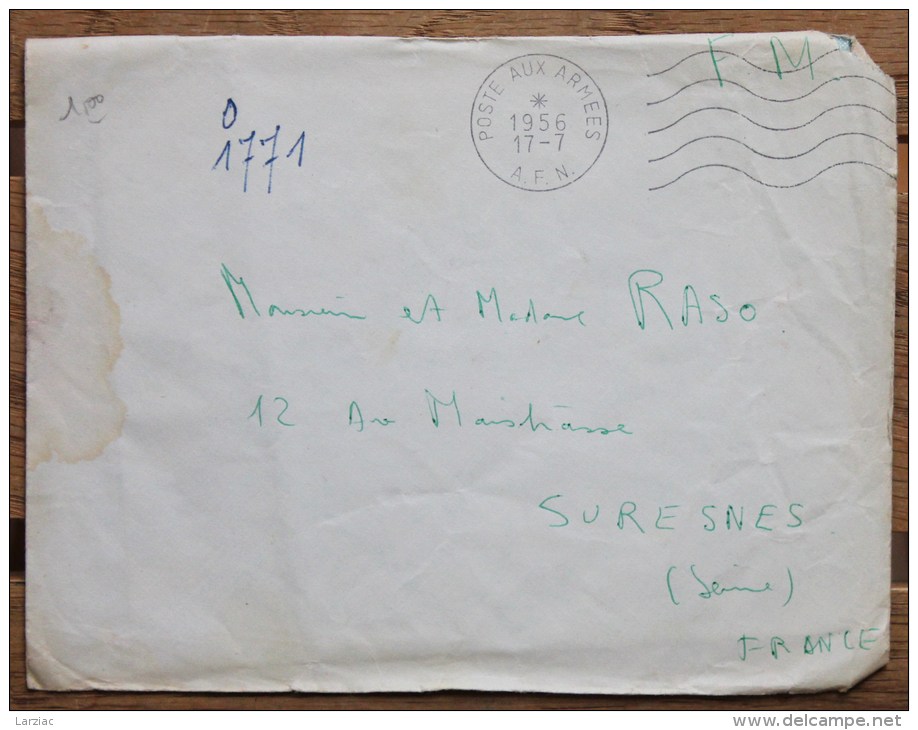 F M
POSTE AUX ARMEES
*
1956
17-7
A.F.N.
0
1771
Monsieur et Madame RASO
12 Av Maistrasse
SURESNES
(Seine)
FRANCE
Larziac
www.delcampe.net